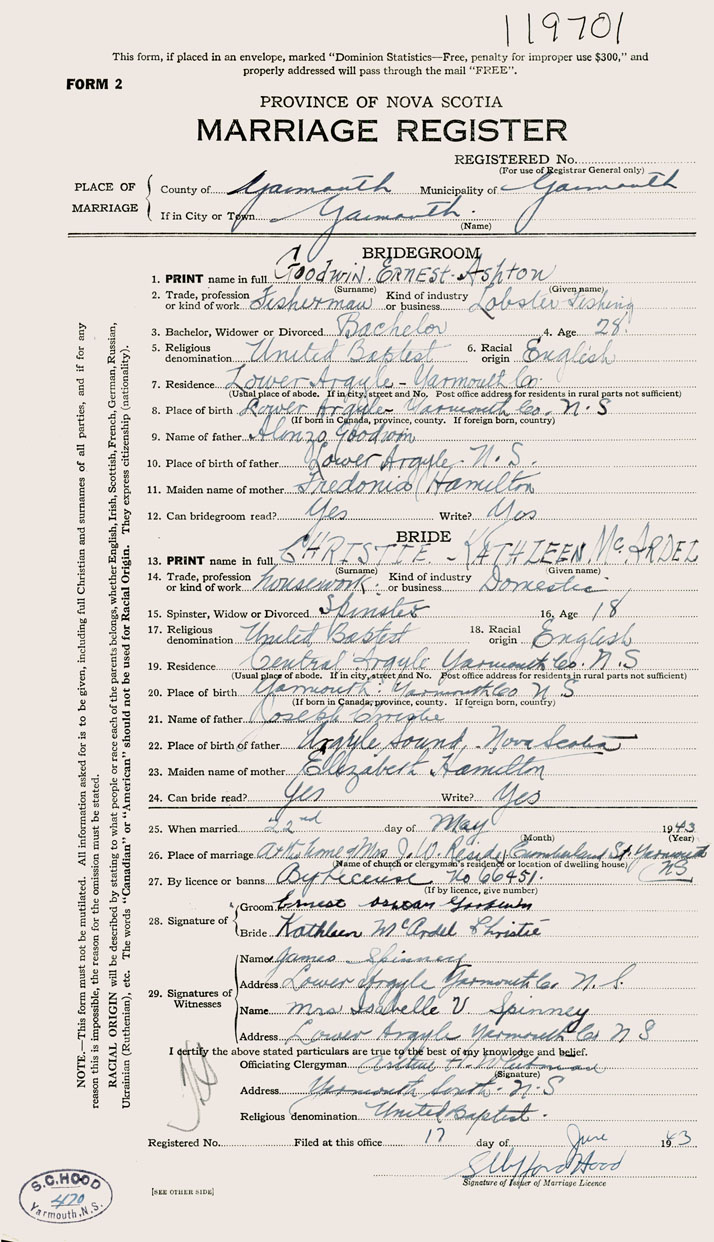 119701
This form, if placed in an envelope, marked "Dominion Statistics—Free, penalty for improper use $300," and
properly addressed will pass through the mail "FREE".
FORM 2
PROVINCE OF NOVA SCOTIA
MARRIAGE REGISTER
REGISTERED No.
(For use of Registrar General only)
PLACE OF MARRIAGE
County of Yarmouth Municipality of Yarmouth
If in City or Town Yarmouth.
(Name)
BRIDEGROOM
1. PRINT name in full Goodwin. Ernest Ashton
(Surname) (Given name)
2. Trade, profession or kind of work Fisherman Kind of industry or business Lobster Fishing
3. Bachelor, Widower or Divorced Bachelor 4. Age 28
5. Religious denomination United Baptist 6. Racial origin English
7. Residence Lower Argyle - Yarmouth Co.
(Usual place of abode. If in city, street and No. Post office address for residents in rural parts not sufficient)
8. Place of birth Lower Argyle - Yarmouth Co. N.S
(If born in Canada, province, county. If foreign born, country)
9. Name of father Alonzo Goodwin
10. Place of birth of father Lower Argyle. N.S.
11. Maiden name of mother Fredonia Hamilton
12. Can bridegroom read? Yes Write? Yes
BRIDE
13. PRINT name in full CHRISTIE - KATHLEEN McARDEL
(Surname) (Given name)
14. Trade, profession or kind of work housework. Kind of industry or business Domestic
15. Spinster, Widow or Divorced Spinster 16. Age 18
17. Religious denomination United Baptist 18. Racial origin English
19. Residence Central Argyle Yarmouth Co. N.S
(Usual place of abode. If in city, street and No. Post office address for residents in rural parts not sufficient)
20. Place of birth Yarmouth. Yarmouth Co N.S
(If born in Canada, province, county. If foreign born, country)
21. Name of father Joseph Christie
22. Place of birth of father Argyle Sound, Nova Scotia
23. Maiden name of mother Elizabeth Hamilton
24. Can bride read? Yes Write? Yes
25. When married 22nd day of May 1943
(Month) (Year)
26. Place of marriage At Home of Mrs J. W. Cumberland St. Yarmouth NS
(Name of church or clergyman's residence or location of dwelling house)
27. By licence or banns By License No 66451.
(If by licence, give number)
28. Signature of
Groom Ernest Goodwin
Bride Kathleen McArdel Christie
29. Signatures of Witnesses
Name James Spinney
Address Lower Argyle Yarmouth Co. N.S.
Name Mrs Isabelle V Spinney
Address Lower Argyle Yarmouth Co N S
I certify the above stated particulars are true to the best of my knowledge and belief.
Officiating Clergyman Arthur H. Whitman
(Signature)
Address Yarmouth South. N.S
Religious denomination United Baptist.
Registered No. Filed at this office 17 day of June 1943
Hood
Signature of Issuer of Marriage Licence
[SEE OTHER SIDE]
S.C.HOOD
470
Yarmouth, N.S.
NOTE.—This form must not be mutilated. All information asked for is to be given, including full Christian and surnames of all parties, and if for any
reason this is impossible, the reason for the omission must be stated.
RACIAL ORIGIN will be described by stating to what people or race each of the parents belongs, whether English, Irish, Scottish, French, German, Russian,
Ukrainian (Ruthenian), etc. The words "Canadian" or "American" should not be used for Racial Origin. They express citizenship (nationality).